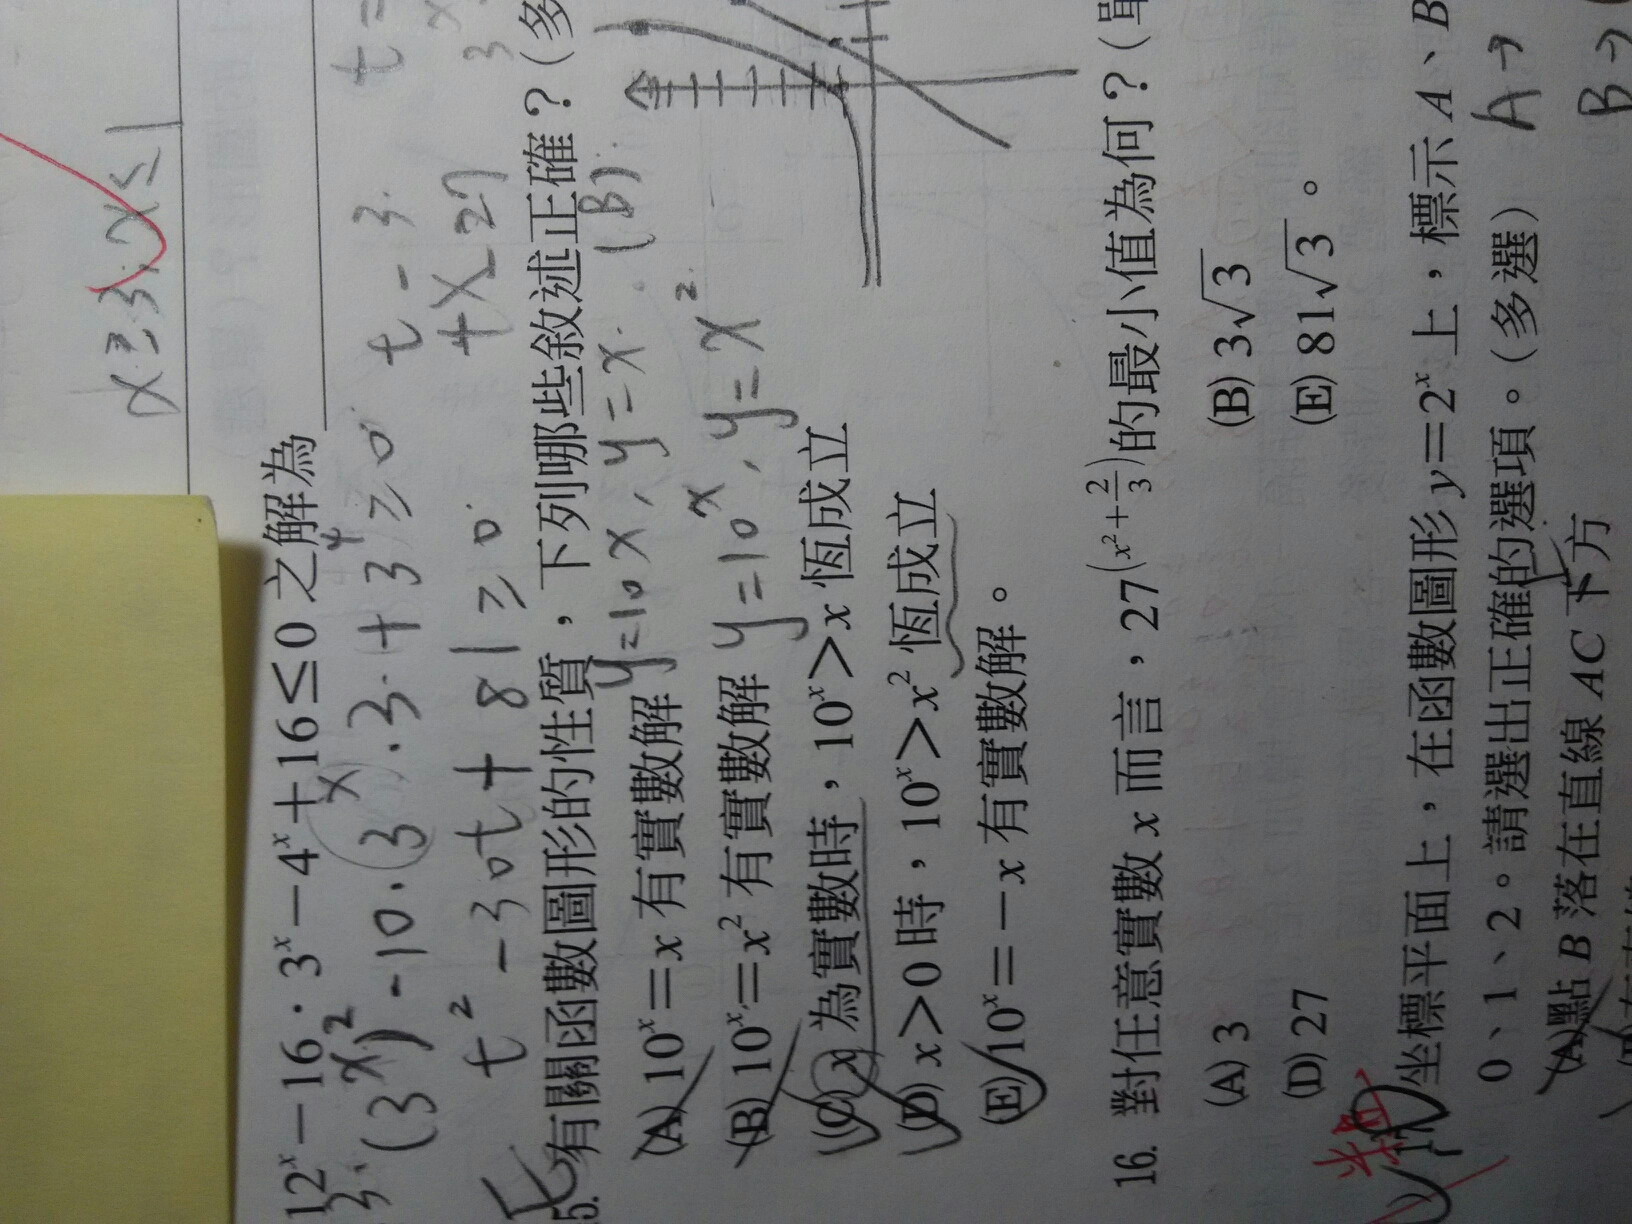 x≥3, x≤1
12ˣ－16．3ˣ－4ˣ＋16≤0 之解為
3·(3ˣ)²－10·(3ˣ)·3＋3⁴≥0
t²－30t＋81≥0
t－3
t－27
有關函數圖形的性質，下列哪些敘述正確？（多
(A) 10ˣ＝x 有實數解
y＝10ˣ, y＝x
(B) 10ˣ＝x² 有實數解
y＝10ˣ, y＝x²
(B)
(C) x 為實數時，10ˣ＞x 恆成立
(D) x＞0 時，10ˣ＞x² 恆成立
(E) 10ˣ＝－x 有實數解。
16. 對任意實數 x 而言，27^(x²＋2/3) 的最小值為何？（單
(A) 3
(B) 3√3
(D) 27
(E) 81√3。
17 坐標平面上，在函數圖形 y＝2ˣ 上，標示 A、B
0、1、2。請選出正確的選項。（多選）
A→
(A) 點 B 落在直線 AC 下方
B→